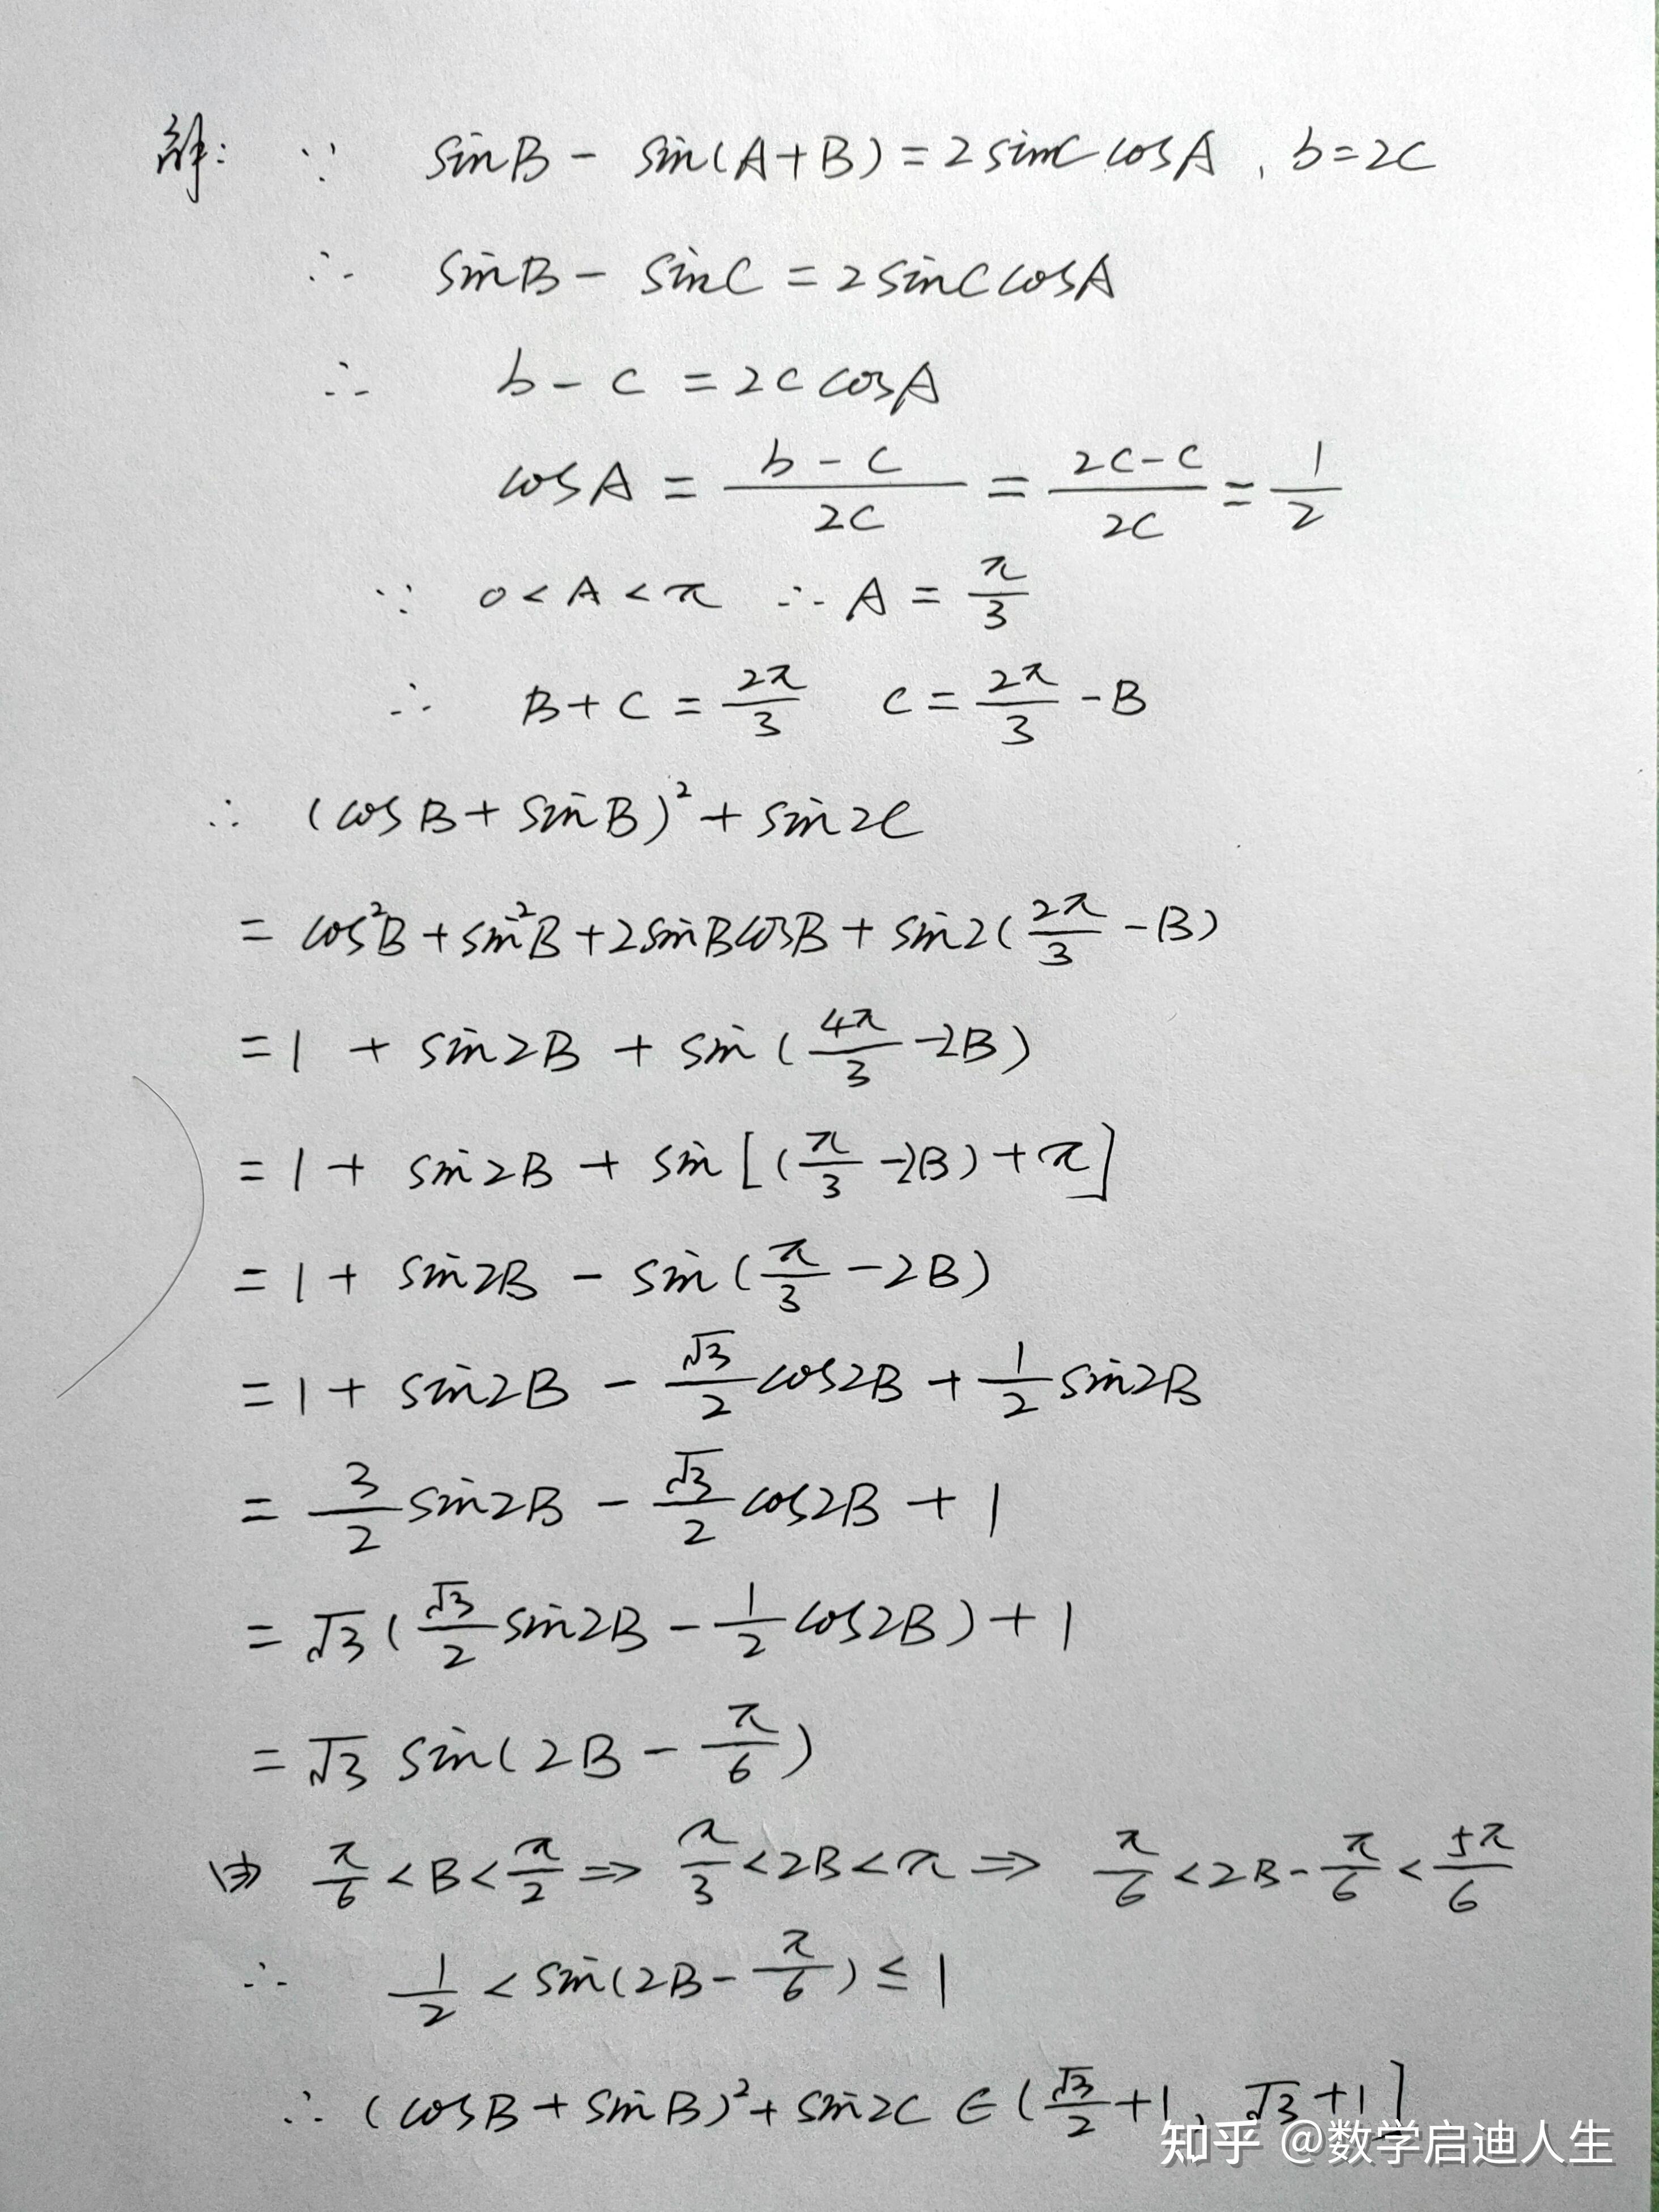 解: ∵ sinB - sin(A+B) = 2sinC cosA , b=2c
∴ sinB - sinC = 2sinC cosA
∴ b - c = 2c cosA
cosA = \frac{b-c}{2c} = \frac{2c-c}{2c} = \frac{1}{2}
∵ 0 < A < π ∴ A = \frac{π}{3}
∴ B + C = \frac{2π}{3} C = \frac{2π}{3} - B
∴ (cosB + sinB)² + sin2C
= cos²B + sin²B + 2sinBcosB + sin2(\frac{2π}{3} - B)
= 1 + sin2B + sin(\frac{4π}{3} - 2B)
= 1 + sin2B + sin[(\frac{π}{3} - 2B) + π]
= 1 + sin2B - sin(\frac{π}{3} - 2B)
= 1 + sin2B - \frac{√3}{2} cos2B + \frac{1}{2} sin2B
= \frac{3}{2} sin2B - \frac{√3}{2} cos2B + 1
= √3(\frac{√3}{2} sin2B - \frac{1}{2} cos2B) + 1
= √3 sin(2B - \frac{π}{6})
\frac{π}{6} < B < \frac{π}{2} ⇒ \frac{π}{3} < 2B < π ⇒ \frac{π}{6} < 2B - \frac{π}{6} < \frac{5π}{6}
∴ \frac{1}{2} < sin(2B - \frac{π}{6}) ≤ 1
∴ (cosB + sinB)² + sin2C ∈ (\frac{√3}{2} + 1, √3 + 1]
知乎 @数学启迪人生